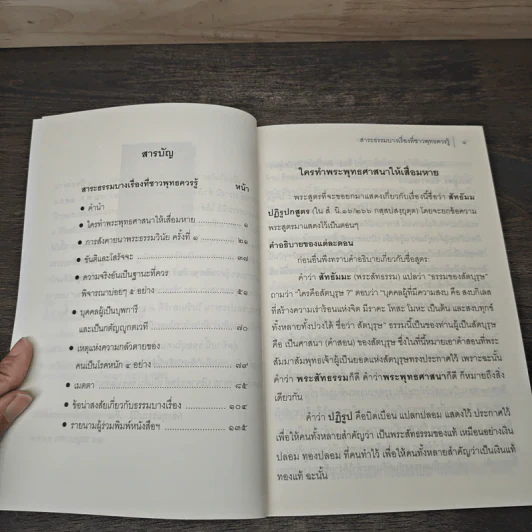 สารบัญ
สาระธรรมบางเรื่องที่ชาวพุทธควรรู้ หน้า
● คำนำ
● ใครทำพระพุทธศาสนาให้เสื่อมหาย ๑
● การสังคายนาพระธรรมวินัย ครั้งที่ ๑ ๒๑
● ขันติและโสรัจจะ ๓๘
● ความจริงอันเป็นฐานะที่ควร
พิจารณาบ่อยๆ ๕ อย่าง ๕๑
● บุคคลผู้เป็นบุพการี
และเป็นกตัญญูกตเวที ๗๐
● เหตุแห่งความกลัวตายของ
คนเป็นโรคหนัก ๔ อย่าง ๗๙
● เมตตา ๘๕
● ข้อน่าสงสัยเกี่ยวกับธรรมบางเรื่อง ๑๐๔
● รายนามผู้ร่วมพิมพ์หนังสือฯ ๑๓๕
สาระธรรมบางเรื่องที่ชาวพุทธควรรู้ ๑
ใครทำพระพุทธศาสนาให้เสื่อมหาย
พระสูตรที่จะขอยกมาแสดงเกี่ยวกับเรื่องนี้ชื่อว่า สัทธัมม
ปฏิรูปกสูตร (ใน สํ. นิ.๑๖/๒๖๖ กสฺสปสํยุตฺต) โดยจะยกข้อความ
พระสูตรมาแสดงไว้เป็นตอนๆ
คำอธิบายของแต่ละตอน
ก่อนอื่นพึงทราบคำอธิบายเกี่ยวกับชื่อสูตร:
คำว่า สัทธัมมะ (พระสัทธรรม) แปลว่า "ธรรมของสัตบุรุษ"
ถามว่า "ใครคือสัตบุรุษ ?" ตอบว่า "บุคคลผู้ที่มีความสงบ คือ สงบกิเลส
ที่สร้างความเร่าร้อนแห่งจิต มีราคะ โทสะ โมหะ เป็นต้น และสงบทุกข์
ทั้งหลายทั้งปวงได้ ชื่อว่า สัตบุรุษ" ธรรมนี้เป็นของท่านผู้เป็นสัตบุรุษ
คือ เป็นศาสนา (คำสอน) ของสัตบุรุษ ซึ่งในที่นี้หมายเอาคำสอนที่พระ
สัมมาสัมพุทธเจ้าผู้เป็นยอดแห่งสัตบุรุษทรงประกาศไว้ เพราะฉะนั้น
คำว่า พระสัทธรรมก็ดี คำว่าพระพุทธศาสนาก็ดี ก็หมายถึงสิ่ง
เดียวกัน
คำว่า ปฏิรูป คือบิดเบือน แปลกปลอม แสดงไว้ ประกาศไว้
เพื่อให้คนทั้งหลายสำคัญว่า เป็นพระสัทธรรมของแท้ เหมือนอย่างเงิน
ปลอม ทองปลอม ที่คนทำไว้ เพื่อให้คนทั้งหลายสำคัญว่าเป็นเงินแท้
ทองแท้ ฉะนั้น